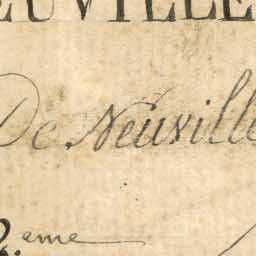 EUVILLE
De Neuville
2.eme